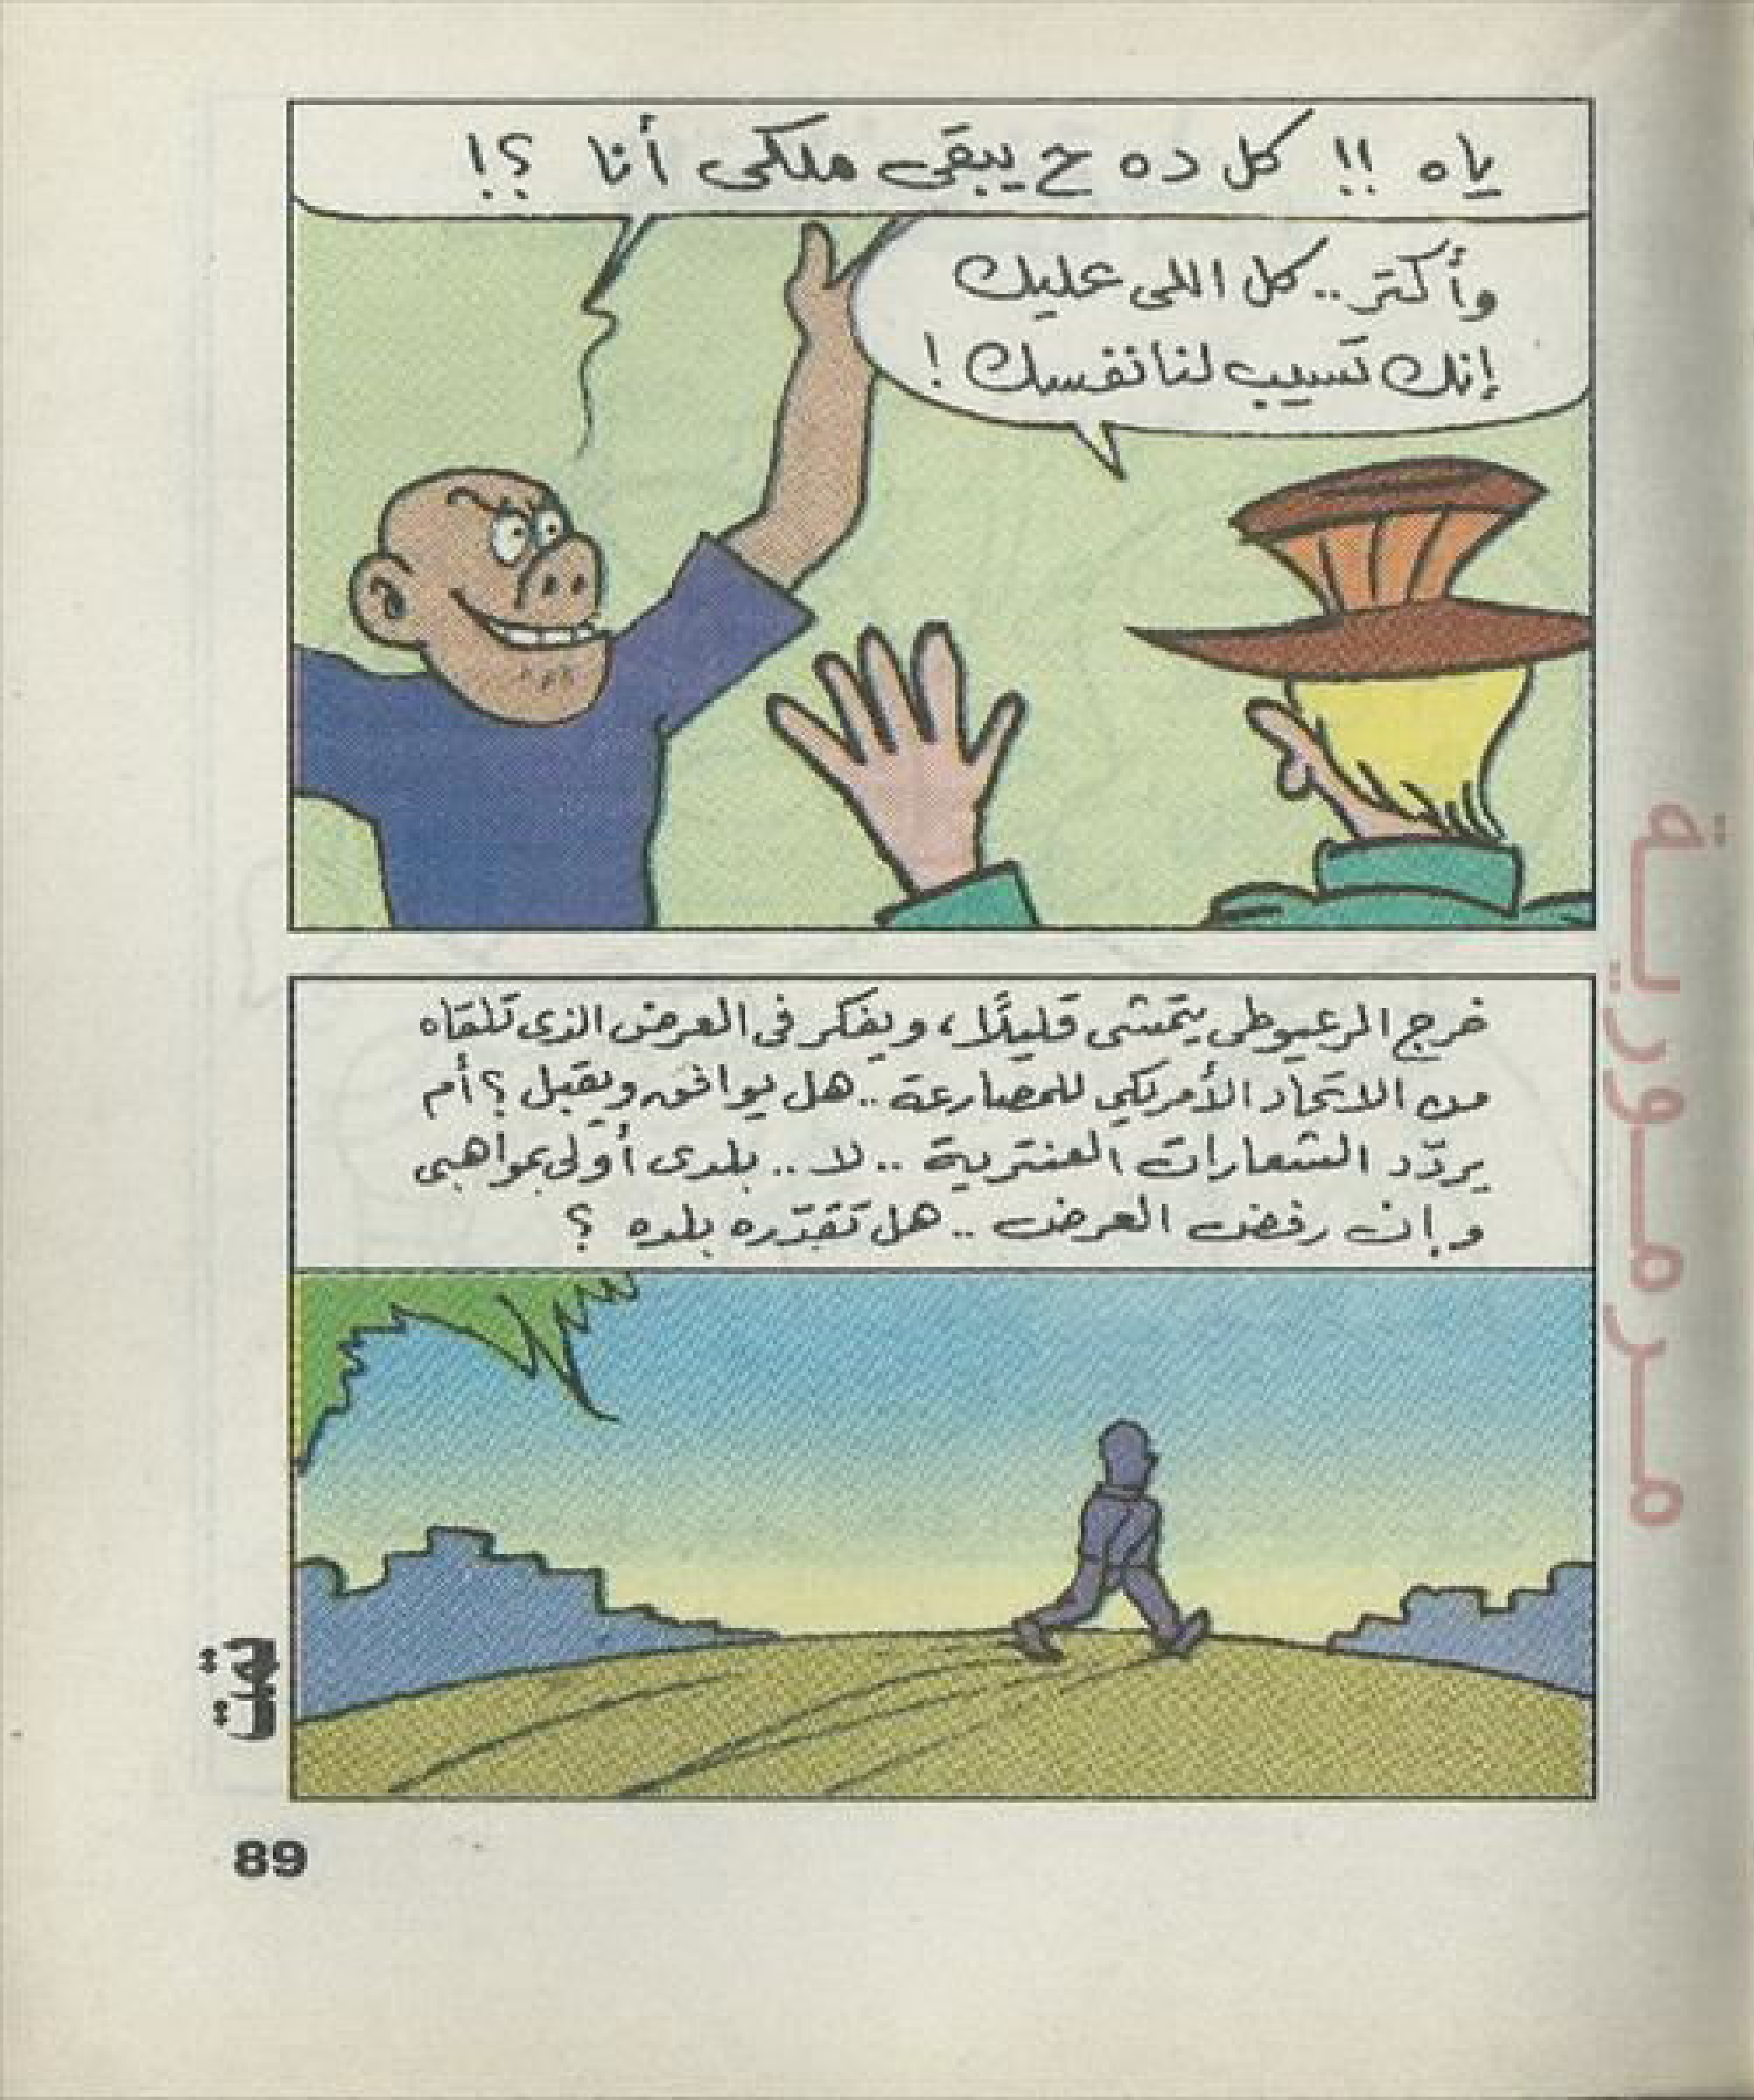 ياه !! كل ده ح يبقى ملكى أنا ؟!
وأكتر.. كل اللى عليك
إنك تسيب لنا نفسك !
خرج الرعبوطى يتمشى قليلًا، ويفكر فى العرض الذى تلقاه
من الاتحاد الأمريكي للمصارعة .. هل يوافق ويقبل ؟ أم
يردّد الشعارات العنترية .. لا .. بلدى أولى بمواهبى
وإن رفض العرض .. هل تقدّره بلده ؟
تمت
89
مرمورية